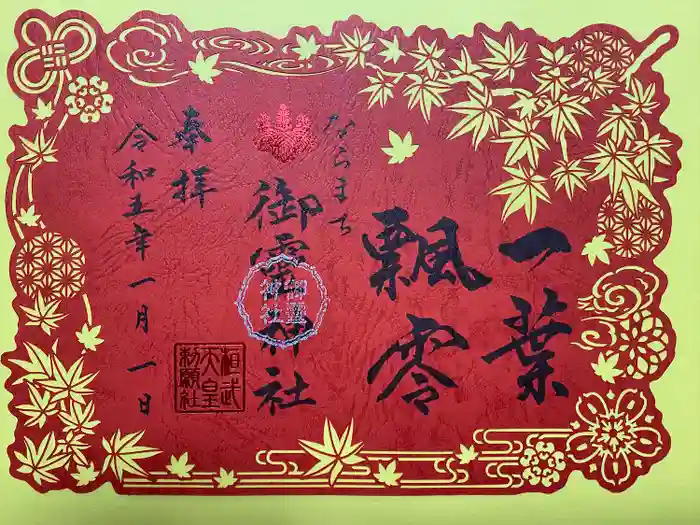 一葉
飄零
ならまち
御霊神社
御霊神社
奉拝
令和五年一月一日
桓武天皇勅願社